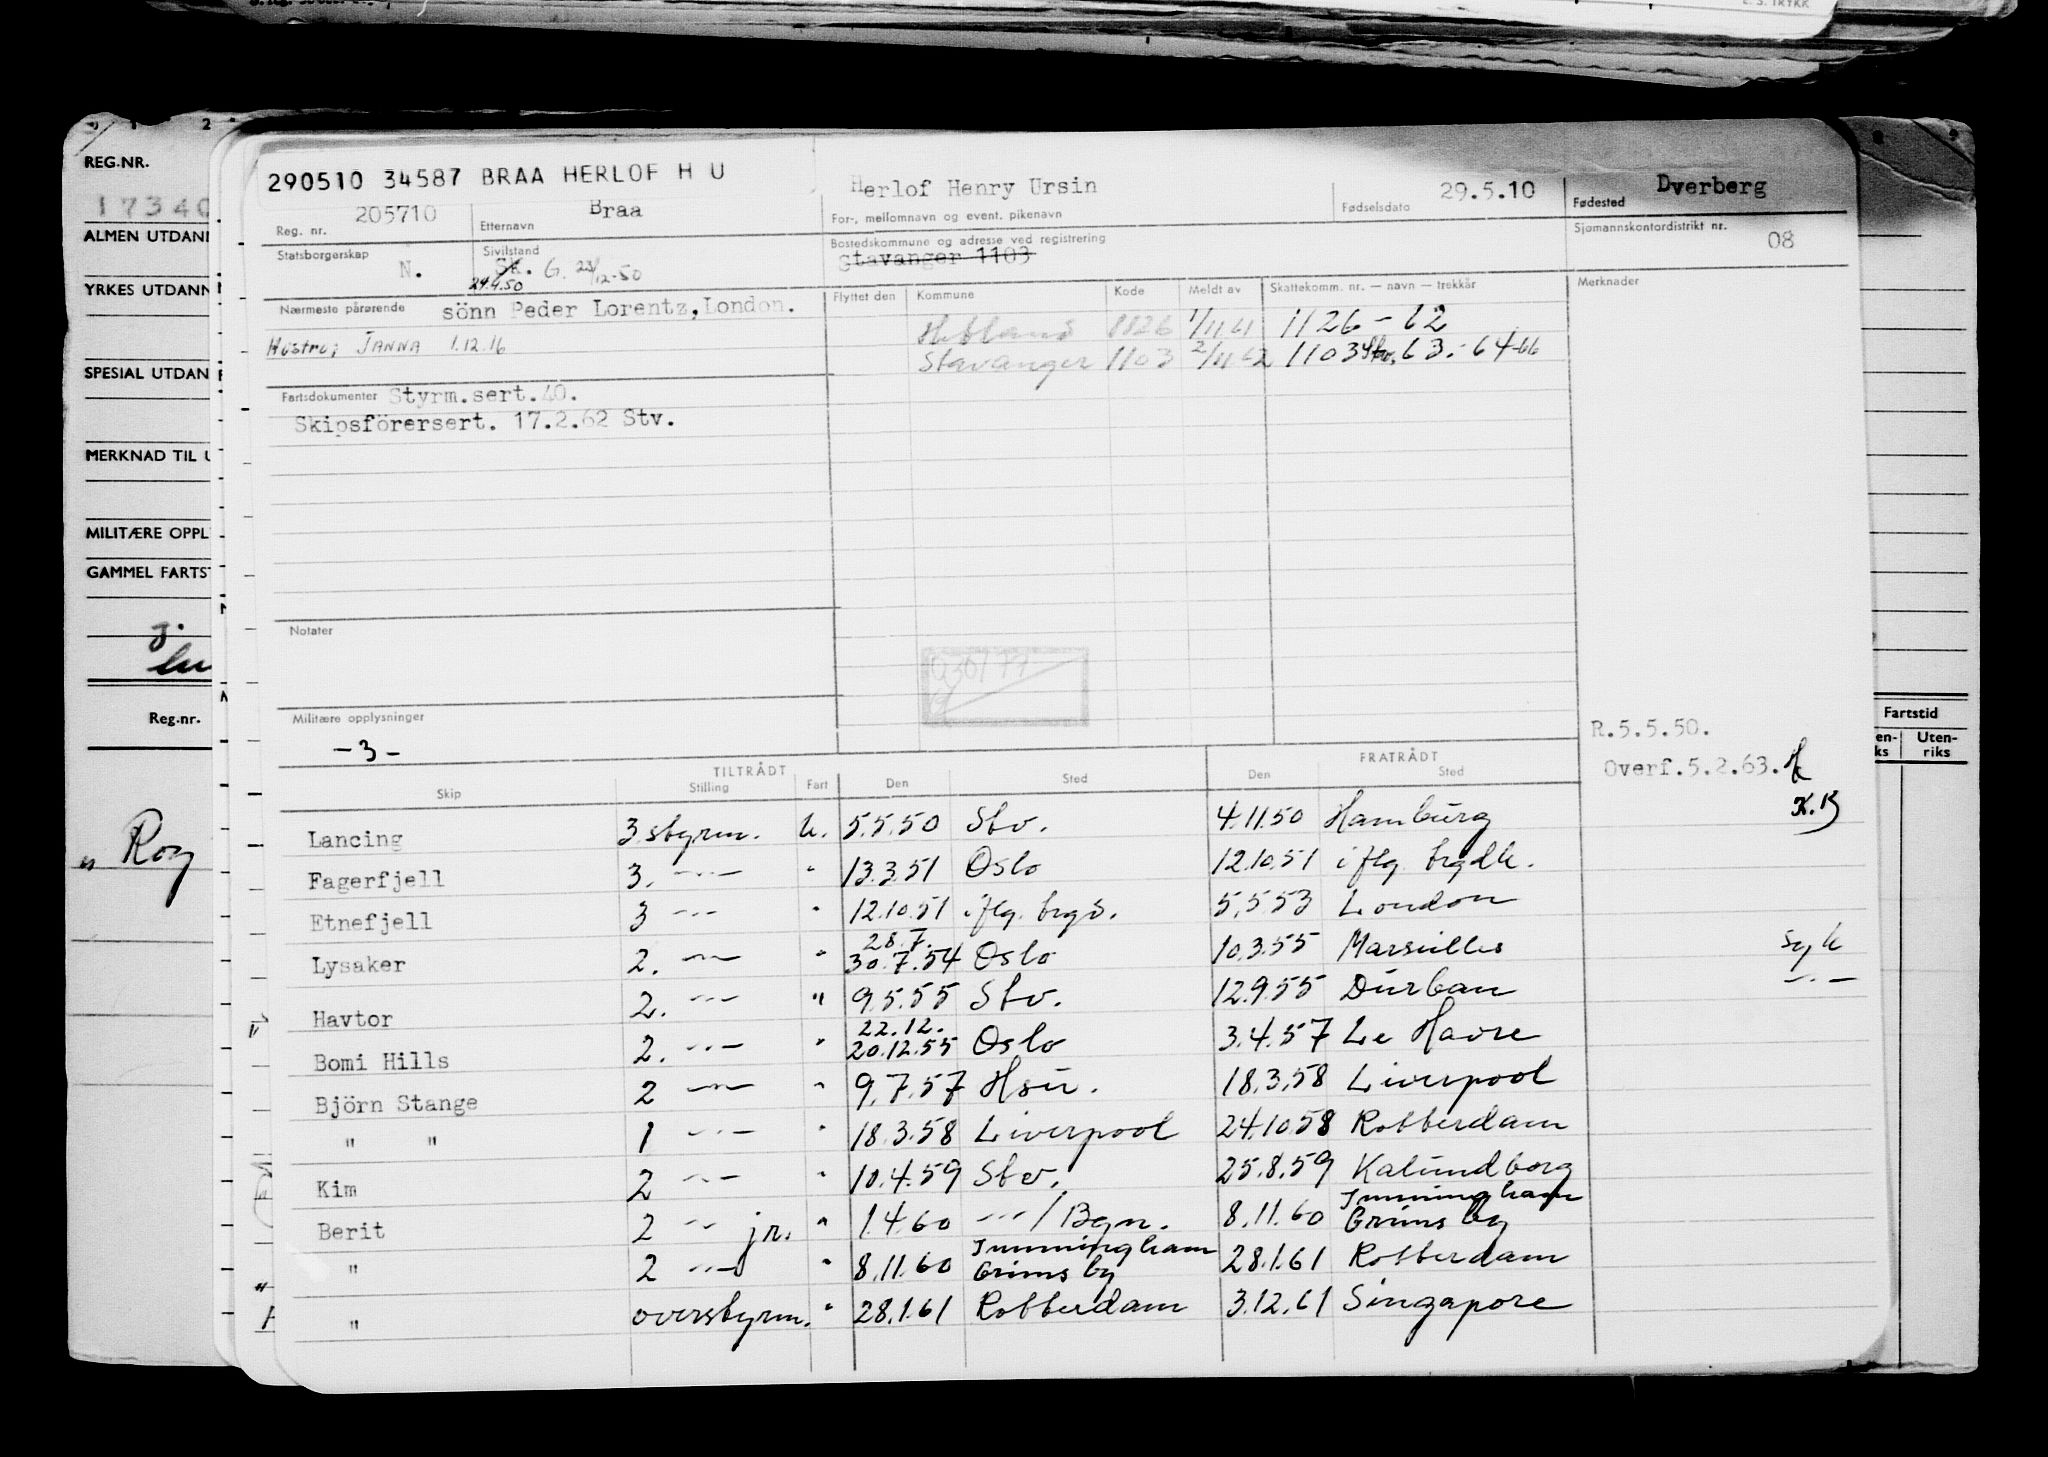 L. S. TRYKK
REG.NR.
17340
ALMEN UTDAN
YRKES UTDANN
SPESIAL UTDAN
MERKNAD TIL U
MILITÆRE OPPL
GAMMEL FARTST
Reg.nr.
" Roy
290510 34587 BRAA HERLOF H U
Reg. nr. 205710
Etternavn Braa
Herlof Henry Ursin
For-, mellomnavn og event. pikenavn
Fødselsdato 29.5.10
Fødested Dverberg
Statsborgerskap N.
Sivilstand Sk. G. 23/12-50
24.4.50
Bostedskommune og adresse ved registrering
Stavanger 1103
Sjømannskontordistrikt nr. 08
Nærmeste pårørende sönn Peder Lorentz, London.
Hustru; JANNA 1.12.16
Flyttet den Kommune Kode Meldt av Skattekomm. nr. — navn — trekkår Merknader
Hetland 1126 1/11 61 1126 - 62
Stavanger 1103 2/11 62 1103 Stv. 63.-64-66
Fartsdokumenter Styrm.sert.40.
Skipsförersert. 17.2.62 Stv.
Notater
Militære opplysninger
-3-
R.5.5.50.
Overf.5.2.63.
K.B
TILTRÅDT FRATRÅDT
Skip Stilling Fart Den Sted Den Sted
Lancing 3 styrm. U. 5.5.50 Stv. 4.11.50 Hamburg
Fagerfjell 3. -"- " 13.3.51 Oslo 12.10.51 i flg. brgdk.
Etnefjell 3 -"- " 12.10.51 i flg. brgs. 5.5.53 London
28.7.
Lysaker 2. -"- " 30.7.54 Oslo 10.3.55 Marseilles syk
Havtor 2. -"- " 9.5.55 Stv. 12.9.55 Durban -"-
22.12.
Bomi Hills 2. -"- " 20.12.55 Oslo 3.4.57 Le Havre
Björn Stange 2 -"- " 9.7.57 Hsu. 18.3.58 Liverpool
" " 1 -"- " 18.3.58 Liverpool 24.10.58 Rotterdam
Kim 2 -"- " 10.4.59 Stv. 25.8.59 Kalundborg
Immingham
Berit 2 -"- jr. " 1.4.60 -"-/Bgn. 8.11.60 Grimsby
Immingham
" 2 -"- " 8.11.60 Grimsby 28.1.61 Rotterdam
" overstyrm. " 28.1.61 Rotterdam 3.12.61 Singapore
Fartstid
Uten-
riks